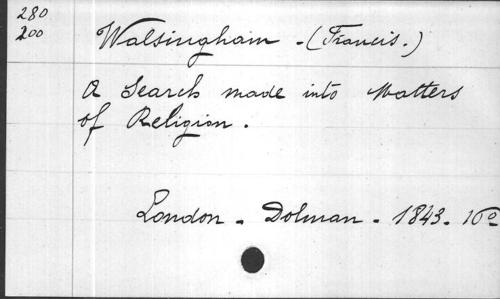 280
200
Walsingham - (Francis.)
A Search made into Matters
of Religion.
London - Dolman - 1843 - 16º